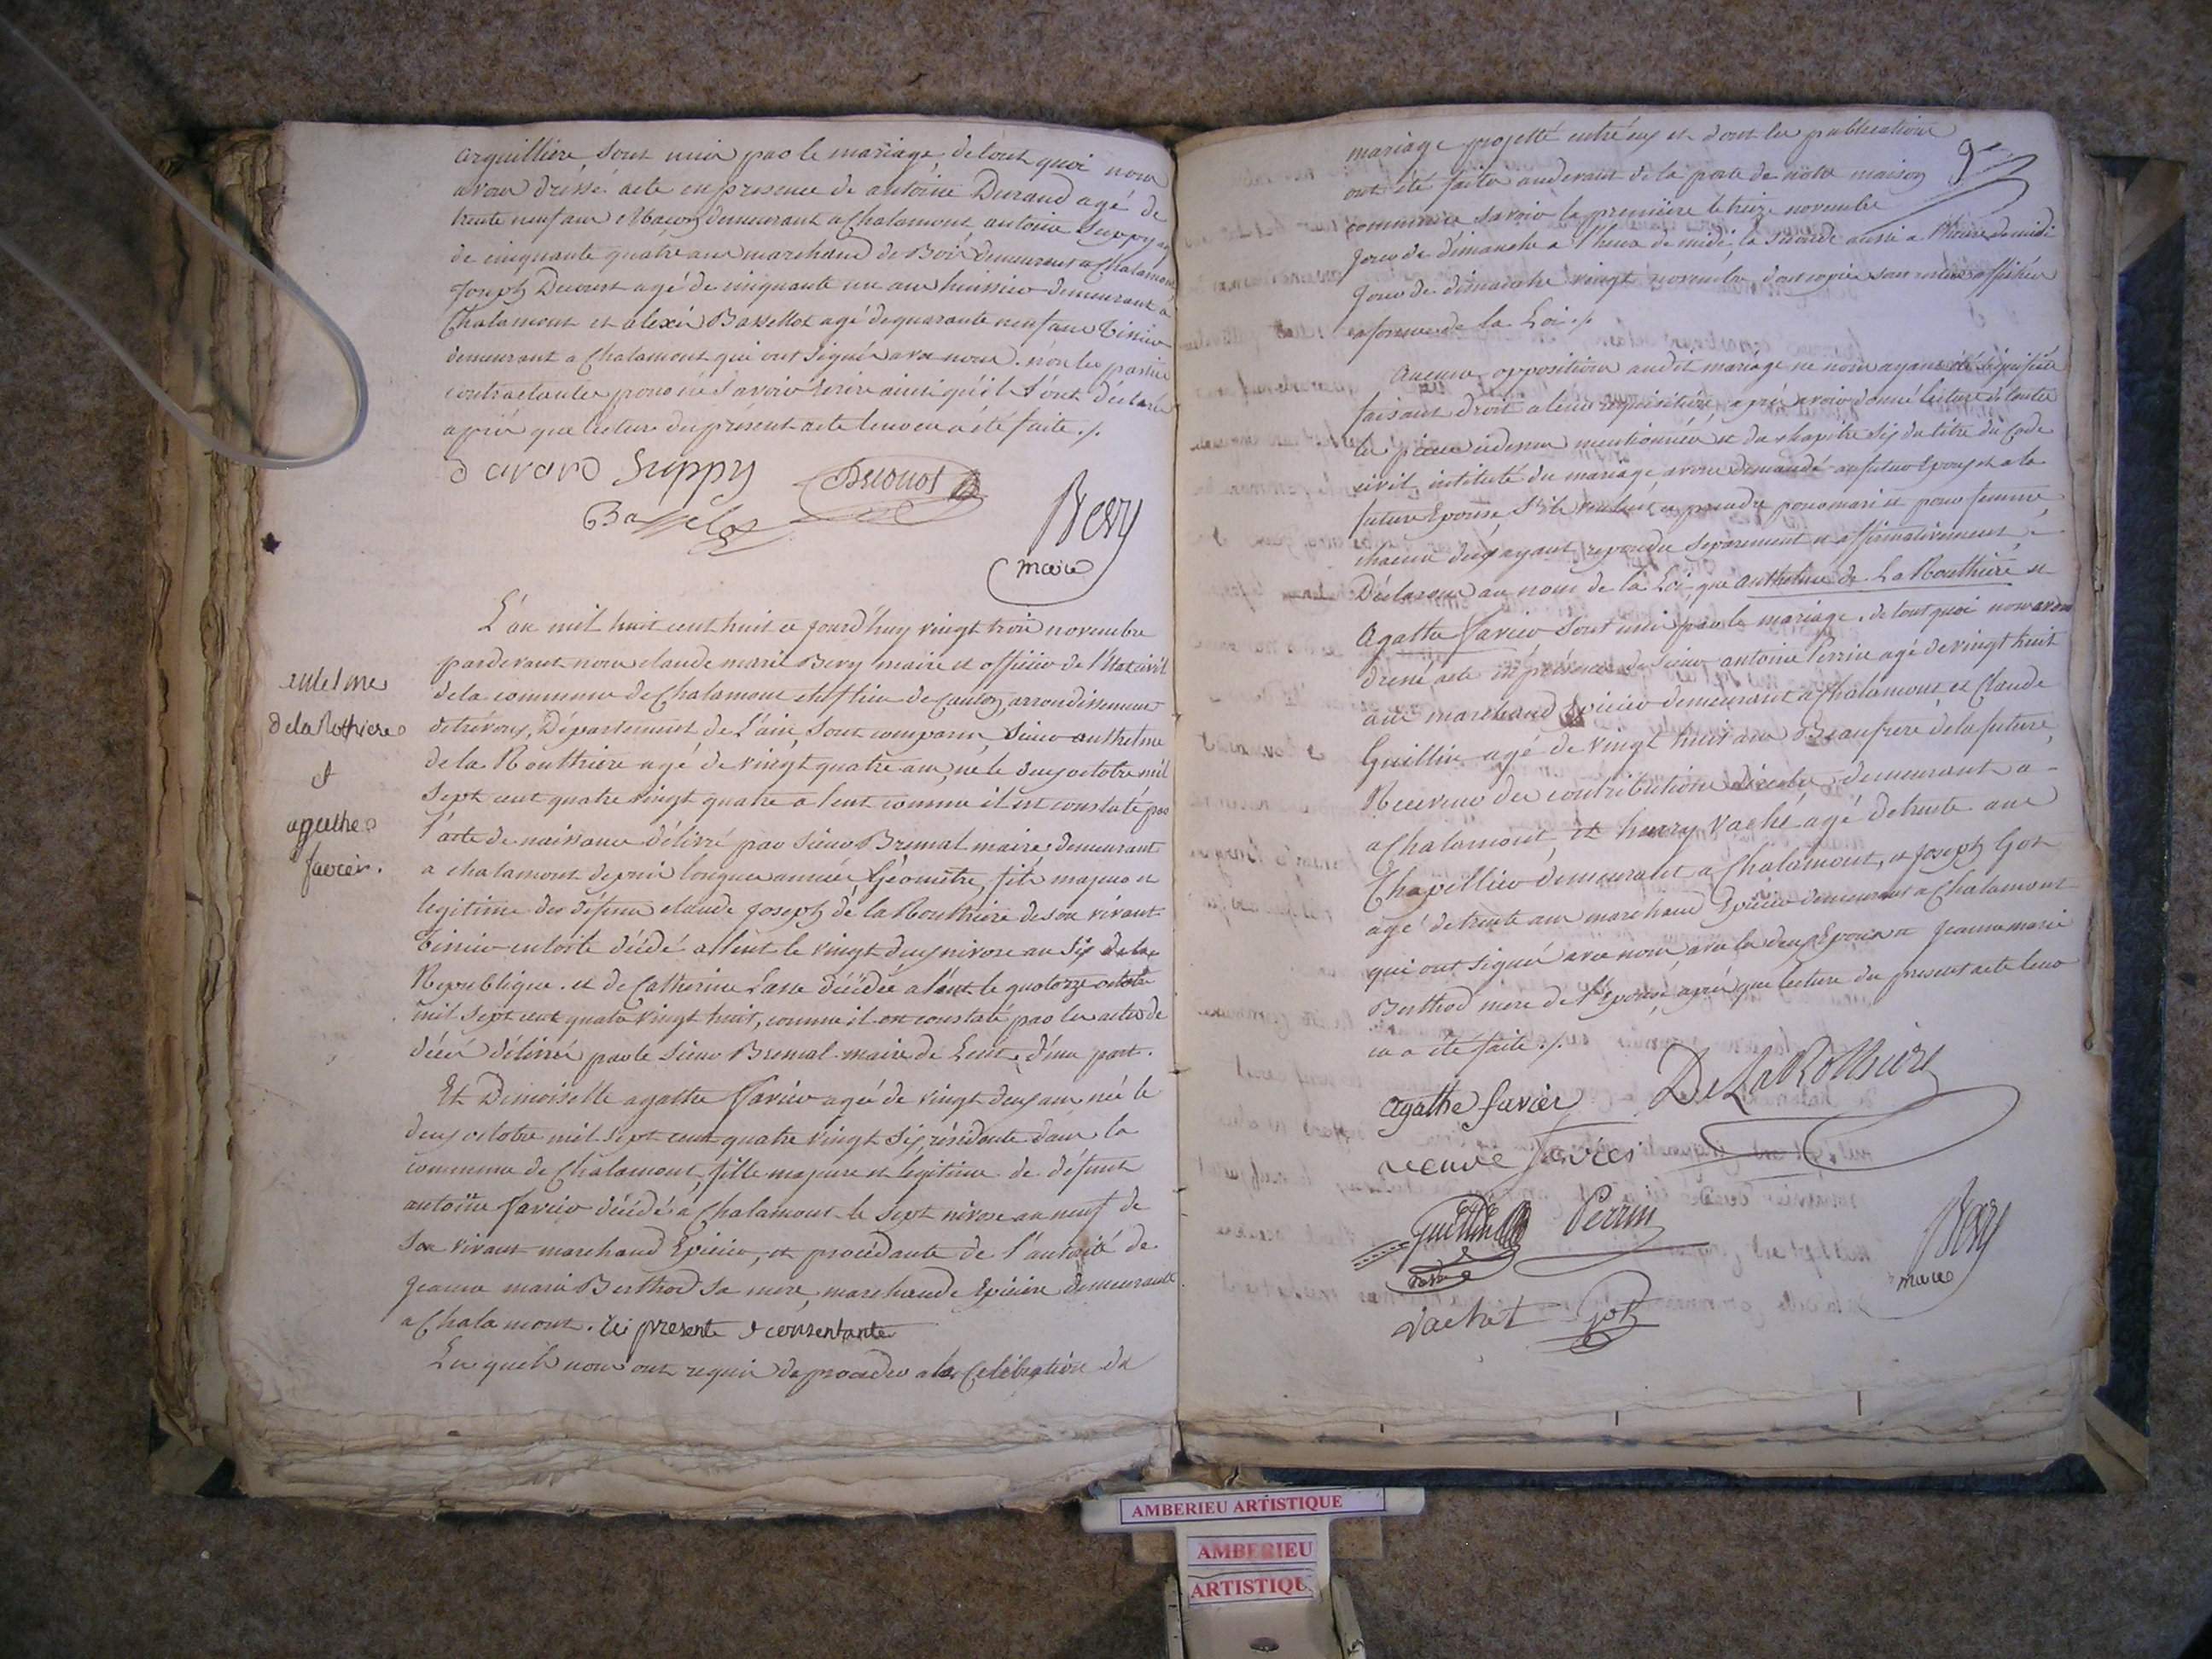 arguilliere sont unis par le mariage, de tout quoi nous
avons dréssé acte en presence de antoine Durand agé de
trente neuf ans Maçon demeurant a Chalamont, antoine Suppy agé
de cinquante quatre ans marchand de Bois demeurant a Chalamont
Joseph Decourt agé de cinquante un ans huissier demeurant a
Chalamont et alexis Bassellot agé de quarante neuf ans
demeurant a Chalamont qui ont signés avec nous. non les parties
contractantes pour ne savoir ecrire ainsi qu'il l'ont déclaré
aprés que lecture du présent acte leur en a été faite ./.
Suppy
Bery
maire
L'an mil huit cent huit ce jourd'huy vingt trois novembre
pardevant nous claude marie Bery maire et officier de l'état civil
de la commune de Chalamont chef lieu de Canton, arrondissement
de trévoux, Département de L'ain, Sont comparus, Sieur anthelme
de la Routhiére agé de vingt quatre ans, né le deux octobre mil
Sept cent quatre vingt quatre a lent comme il est constaté par
l'acte de naissance délivré par Sieur Bremal maire, demeurant
a chalamont depuis longues années, Géométre, fils majeur et
legitime des défunts claude Joseph de la Routhiére de son vivant
décédé a lent le vingt deux nivose an Six de la
Republique. et de Catherine décédée a lent le quatorze octobre
mil Sept cent quatre vingt huit, comme il est constaté par les actes de
décés délivrés par le Sieur Bremal maire de Lent, d'une part.
Et Demoiselle agathe Favier agée de vingt deux ans née le
deux octobre mil Sept cent quatre vingt Six résidente dans la
commune de Chalamont fille majeure et legitime de défunt
antoine favier décédé a Chalamont le Sept nivose an neuf de
Son vivant marchand Epicier, et procédante de l'autorité de
Jeanne marie Berthod Sa mere, marchande Epiciére demeurante
a Chalamont. ici presente & consentante
Lesquels nous ont requis de proceder a la Célébration du
De la Rothiere
&
agathe
favier.
mariage projetté entr'eux et dont les publications
ont été faites au devant de la porte de nôtre maison
commune savoir la premiére le treize novembre
jour de dimanche a l'heure de midi, la seconde aussi a l'heure de midi
jour de dimanche vingt novembre dont copies sont restées affichées
a forme de la Loi ./.
Aucune opposition audit mariage ne nous ayant été signifiée
faisant droit a leur requisition, aprés avoir donné lecture de toutes
les piéces cidessus mentionnées et du chapitre Six du titre du Code
civil intitulé du mariage, avons demandé au futur Epoux et a la
future Epouse S'ils veulent se prendre pour mari et pour femme,
chacun d'eux ayant repondu separement et affirmativement,
Déclarons au nom de la Loi, que anthelme de La Routhiére et
Agathe Favier Sont unis par le mariage. de tout quoi nous avons
dressé acte en présence de Sieur antoine Perrin agé de vingt huit
ans marchand Epicier demeurant a Chalamont, et Claude
Guillin agé de vingt huit ans Beaufrere de la future,
Receveur des contributions directes demeurant a
a Chalamont, et henry Vaché agé de trente ans
Chapellier demeurant a Chalamont, et Joseph Got
agé de trente ans marchand Epicier demeurant a Chalamont
qui ont signé avec nous, avec les deux Epoux et Jeanne marie
Berthod mere de l'Epouse, aprés que lecture du present acte leur
en a été faite ./.
agathe favier DeLaRothiere
veuve favier
Guillin Perrin
Bery
maire
vachet Got
AMBERIEU ARTISTIQUE
AMBERIEU
ARTISTIQU